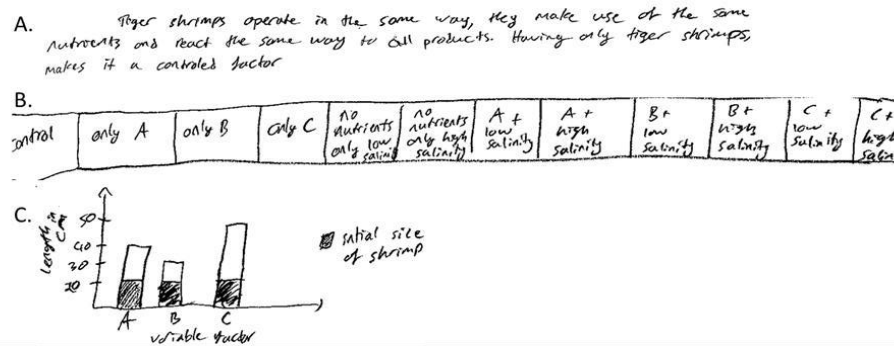 A. Tiger shrimps operate in the same way, they make use of the same
nutrients and react the same way to all products. Having only tiger shrimps,
makes it a controled factor
B.
control
only A
only B
only C
no nutrients only low salinity
no nutrients only high salinity
A + low salinity
A + high salinity
B + low salinity
B + high salinity
C + low salinity
C + high salin
C.
Length in cm
50
40
30
20
A B C
variable factor
intial size
of shrimp